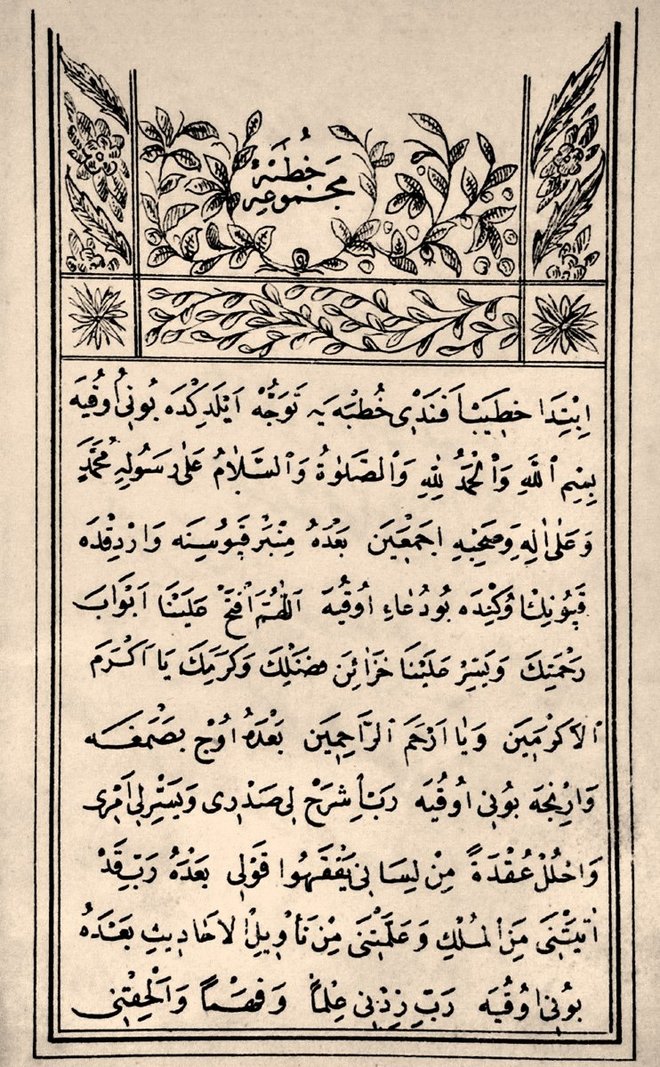 خُطْبَهٔ
مَجْمُوعِه
اِبْتِدَا خطَيبْ اَفَنْدِى خُطْبَه يَه تَوَجُّهْ اَيْلَدِكْدَه بُونِى اُوقُيَه
بِسْمِ ٱللّٰهِ وَٱلْحَمْدُ لِلّٰهِ وَٱلصَّلٰوةُ وَٱلسَّلَامُ عَلٰى رَسُولِهِ مُحَمَّدٍ
وَعَلٰى اٰلِهِ وَصَحْبِهِ اجمَعْيَن بَعْدَهُ مِنْبَرْ قَپُوسِنَه وَارْدِقْدَه
قَپُونِكْ اوُكِنْدَه بُودُعَاءِ اُوقُيَه اَللّٰهُمَّ اَفْتَحْ عَلَيْنَا اَبْوَابَ
رَحْمَتِكَ وَيَسِرْ عَلَيْنَا خَزَائِنَ فضَلِكَ وَكَرَمِكَ يَا اَكْرَمَ
ٱلاَكْرَمِينَ وَيَا اَرْحَمَ ٱلرَّاحِمِينَ بَعْدَهُ اوُچ بصَمَغَه
وَارِنْجَه بُونِى اُوقُيَه رَبِّ اِشرَحْ لِى صَدْرِى وَيَسِّرْ لِى اَمْرِى
وَاحْلُلْ عُقْدَةً مِنْ لِسَانِى يَفْقَهُوا قَوْلِى بَعْدَهُ رَبِّ قَدْ
اٰتَيْتَنِى مِنَ ٱلمُلْكِ وَعَلَّمْتَنِى مِنْ تَأوِيلِ ٱلاَحَادِيثِ بَعْدَهُ
بُونِى اوُقُيَه رَبِّ زِدْنِى عِلْمًا وَفَهْمًا وَاَلْحِقْنِى